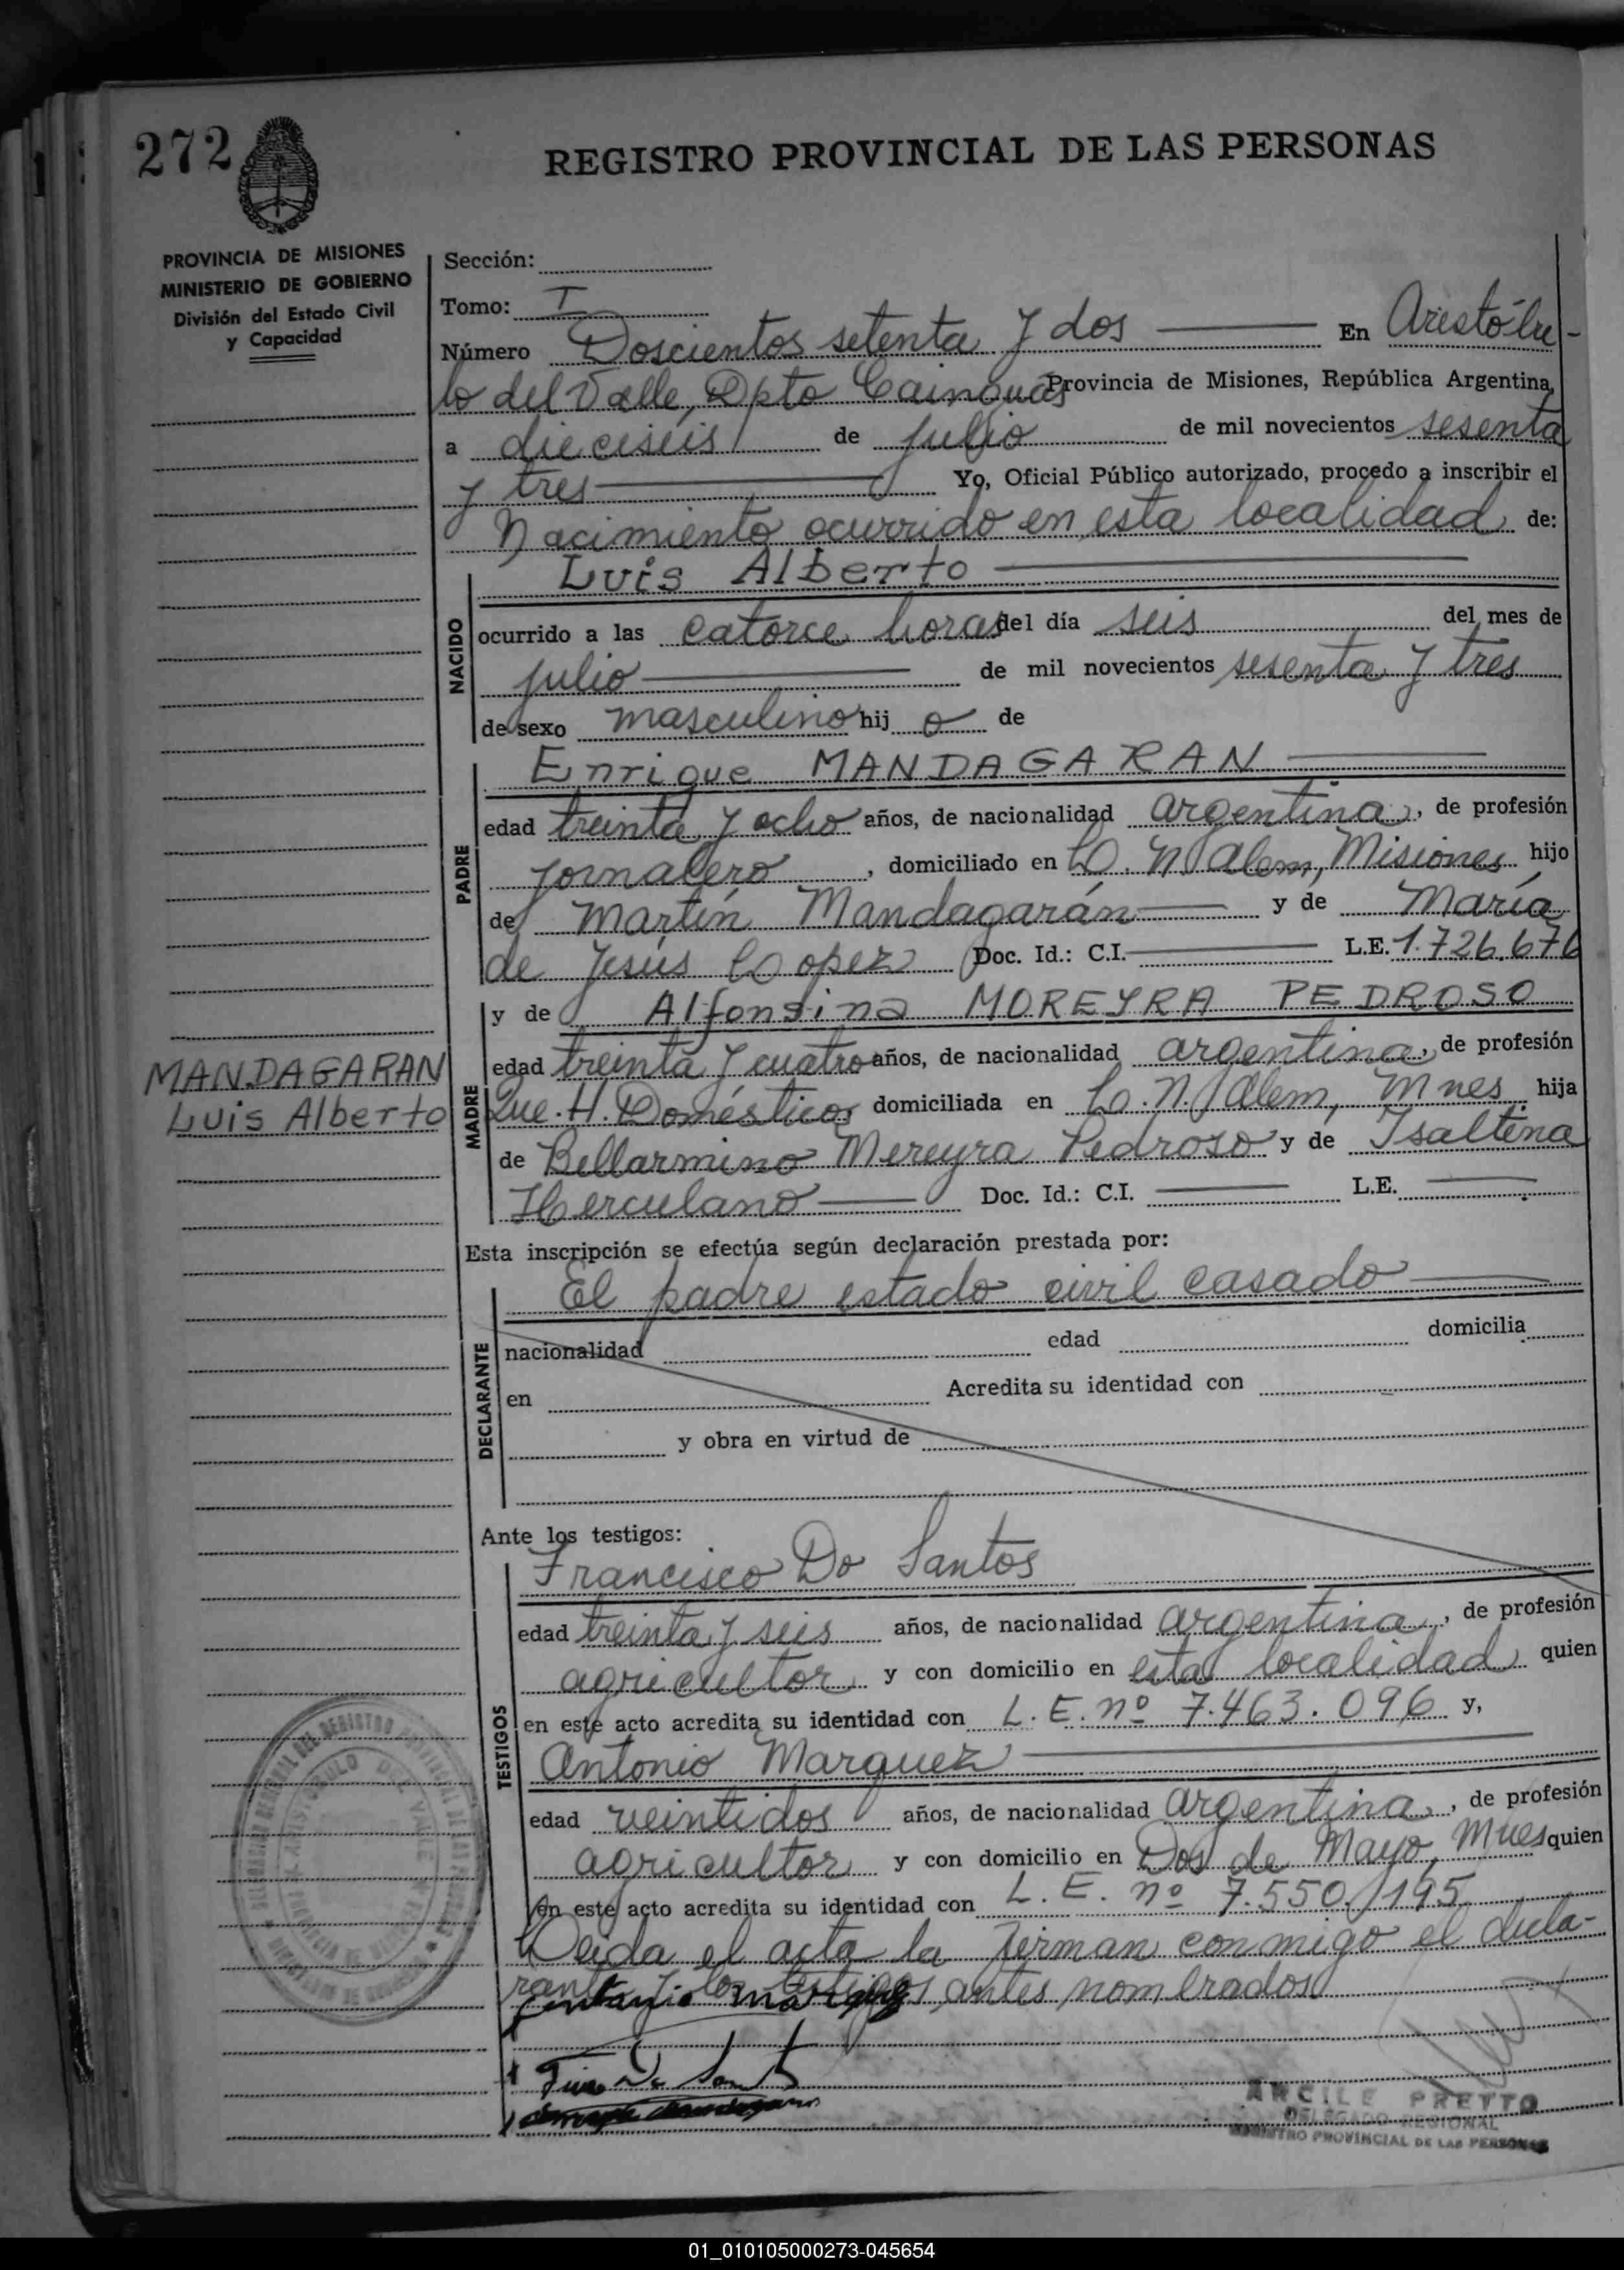 272
REGISTRO PROVINCIAL DE LAS PERSONAS
PROVINCIA DE MISIONES
MINISTERIO DE GOBIERNO
División del Estado Civil
y Capacidad
Sección:
Tomo: I
Número Doscientos setenta y dos En Aristólu-
lo del Valle, Dpto Cainguás Provincia de Misiones, República Argentina,
a dieciséis de julio de mil novecientos sesenta
y tres Yo, Oficial Público autorizado, procedo a inscribir el
Nacimiento ocurrido en esta localidad de:
Luis Alberto
NACIDO
ocurrido a las catorce horas del día seis del mes de
julio de mil novecientos sesenta y tres
de sexo masculino hij o de
PADRE
Enrique MANDAGARAN
edad treinta y ocho años, de nacionalidad argentina, de profesión
jornalero, domiciliado en L. N. Alem, Misiones hijo
de Martín Mandagarán y de María
de Jesús Lopez Doc. Id.: C.I. L.E. 1.726.676
y de Alfonsina MOREYRA PEDROSO
MANDAGARAN
Luis Alberto
MADRE
edad treinta y cuatro años, de nacionalidad argentina, de profesión
Que. H. Domésticos domiciliada en L. N. Alem, Mnes. hija
de Bellarmino Mereyra Pedroso y de Isaltina
Herculano Doc. Id.: C.I. L.E.
Esta inscripción se efectúa según declaración prestada por:
El padre estado civil casado
DECLARANTE
nacionalidad edad domicilia
en Acredita su identidad con
y obra en virtud de
Ante los testigos:
Francisco Do Santos
TESTIGOS
edad treinta y seis años, de nacionalidad argentina, de profesión
agricultor y con domicilio en esta localidad quien
en este acto acredita su identidad con L. E. nº 7.463.096 y,
Antonio Marquez
edad veintidos años, de nacionalidad argentina, de profesión
agricultor y con domicilio en Dos de Mayo, Mnes quien
en este acto acredita su identidad con L. E. nº 7.550.195
Leida el acta la firman conmigo el decla-
rante y los testigos antes nombrados
ARCILE PRETTO
DELEGADO REGIONAL
REGISTRO PROVINCIAL DE LAS PERSONAS
01_010105000273-045654